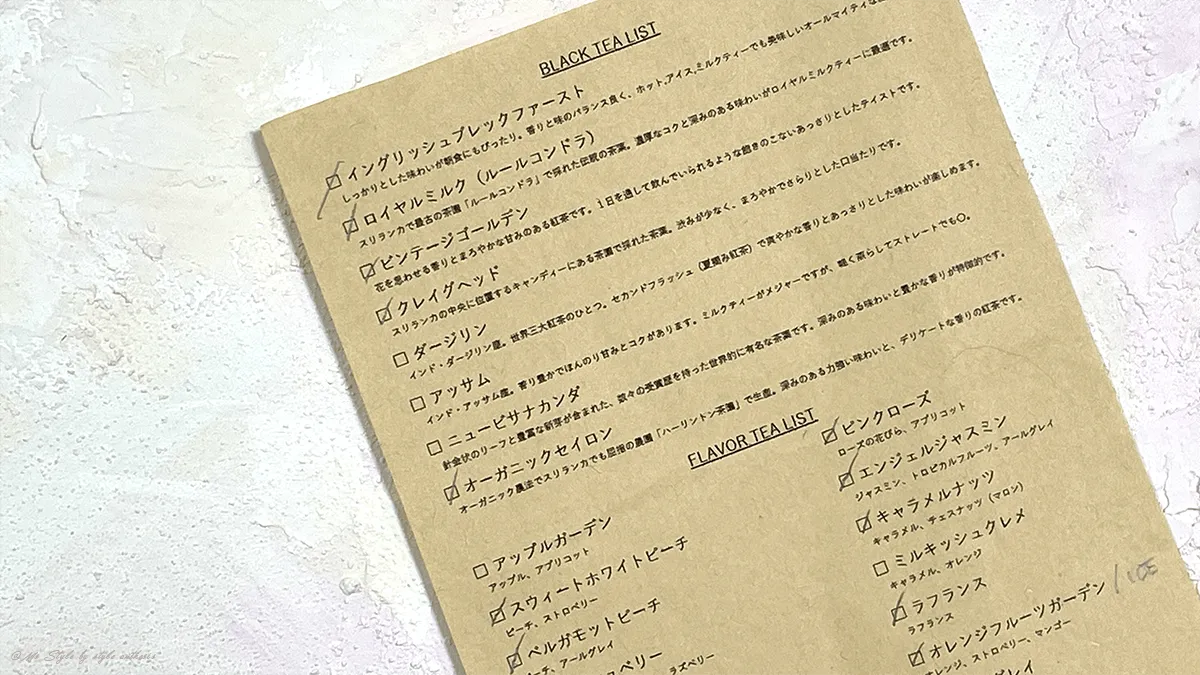 BLACK TEA LIST
イングリッシュブレックファースト
しっかりとした味わいが朝食にもぴったり。香りと味のバランス良く、ホット,アイス,ミルクティーでも美味しいオールマイティな
ロイヤルミルク（ルールコンドラ）
スリランカで最古の茶園「ルールコンドラ」で採れた伝説の茶葉。濃厚なコクと深みのある味わいがロイヤルミルクティーに最適です。
ビンテージゴールデン
花を思わせる香りとまろやかな甘みのある紅茶です。1日を通して飲んでいられるような飽きのこないあっさりとしたテイストです。
クレイグヘッド
スリランカの中央に位置するキャンディーにある茶園で採れた茶葉。渋みが少なく、まろやかでさらりとした口当たりです。
ダージリン
インド・ダージリン産。世界三大紅茶のひとつ。セカンドフラッシュ（夏摘み紅茶）で爽やかな香りとあっさりとした味わいが楽しめます。
アッサム
インド・アッサム産。香り豊かでほんのり甘みとコクがあります。ミルクティーがメジャーですが、軽く蒸らしてストレートでも○。
ニュービサナカンダ
針金状のリーフと豊富な新芽が含まれた、数々の受賞歴を持った世界的に有名な茶葉です。深みのある味わいと豊かな香りが特徴的です。
オーガニックセイロン
オーガニック農法でスリランカでも屈指の農園「ハーリントン茶園」で生産。深みのある力強い味わいと、デリケートな香りの紅茶です。
FLAVOR TEA LIST
アップルガーデン
アップル、アプリコット
スウィートホワイトピーチ
ピーチ、ストロベリー
ベルガモットピーチ
ーチ、アールグレイ
ベリー
ラズベリー
ピンクローズ
ローズの花びら、アプリコット
エンジェルジャスミン
ジャスミン、トロピカルフルーツ、アールグレイ
キャラメルナッツ
キャラメル、チェスナッツ（マロン）
ミルキッシュクレメ
キャラメル、オレンジ
ラフランス
ラフランス
オレンジフルーツガーデン /ICE
オレンジ、ストロベリー、マンゴー
グレイ